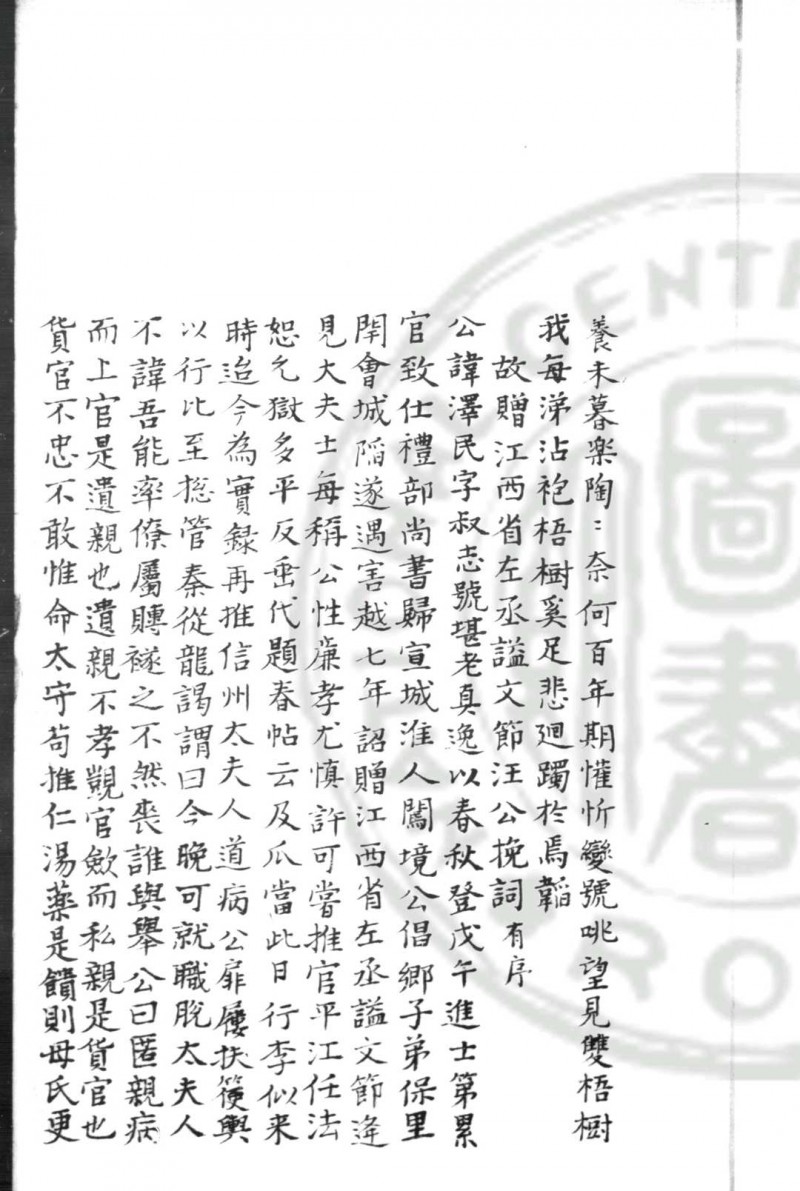 養未暮樂陶〻奈何百年期懽忻變號咷望見雙梧樹
我每涕沾袍梧樹奚足悲迴躅於焉韜
故贈江西省左丞謚文節汪公挽詞有序
公諱澤民字叔志號堪老真逸以春秋登戊午進士第累
官致仕禮部尚書歸宣城淮人闖境公倡鄉子弟保里
閈會城陷遂遇害越七年詔贈江西省左丞謚文節逢
見大夫士每稱公性廉孝尤慎許可嘗推官平江任法
恕允獄多平反垂代題春帖云及爪當此日行李似來
時迨今為實録再推信州太夫人道病公扉屨扶篗輿
以行比至捴管秦從龍謁謂曰今晚可就職脫太夫人
不諱吾能率僚屬賻襚之不然喪誰與舉公曰匿親病
而上官是遺親也遺親不孝覬官歛而私親是貨官也
貨官不忠不敢惟命太守苟推仁湯藥是饋則母氏更
CENTRA
圖書